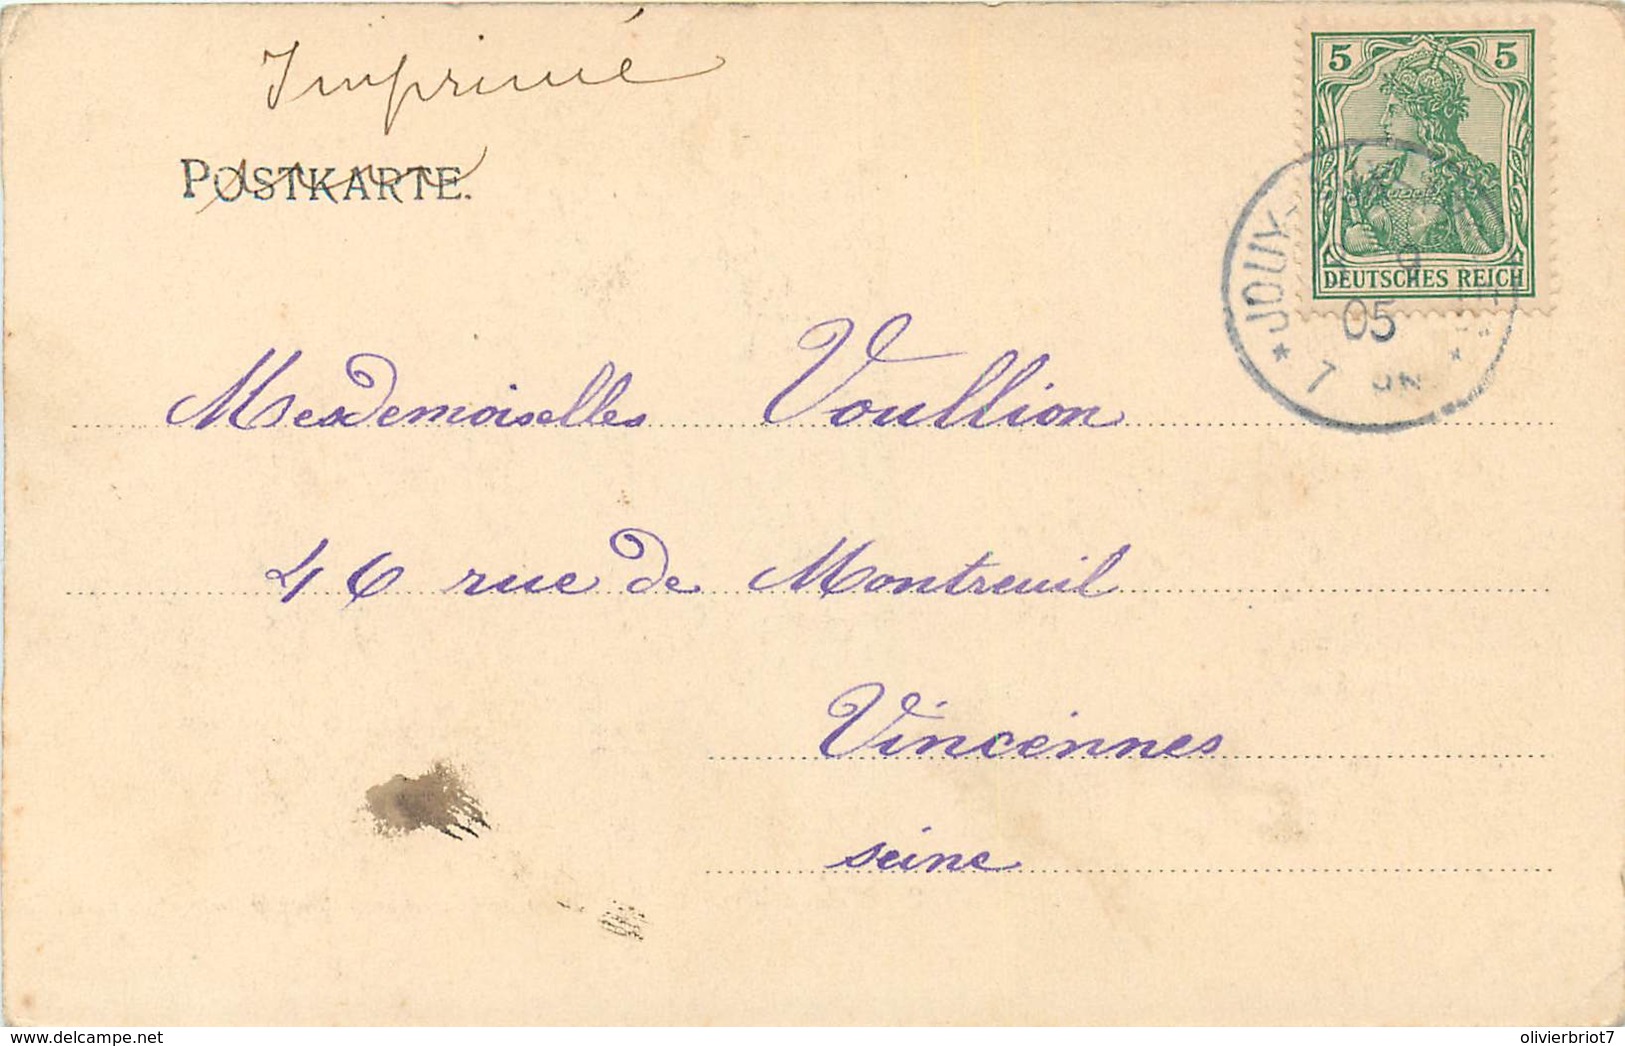 Imprimé
POSTKARTE.
5 5
DEUTSCHES REICH
* JOUY-
05
7
Mesdemoiselles Voullion
46 rue de Montreuil
Vincennes
seine
www.delcampe.net
olivierbriot7